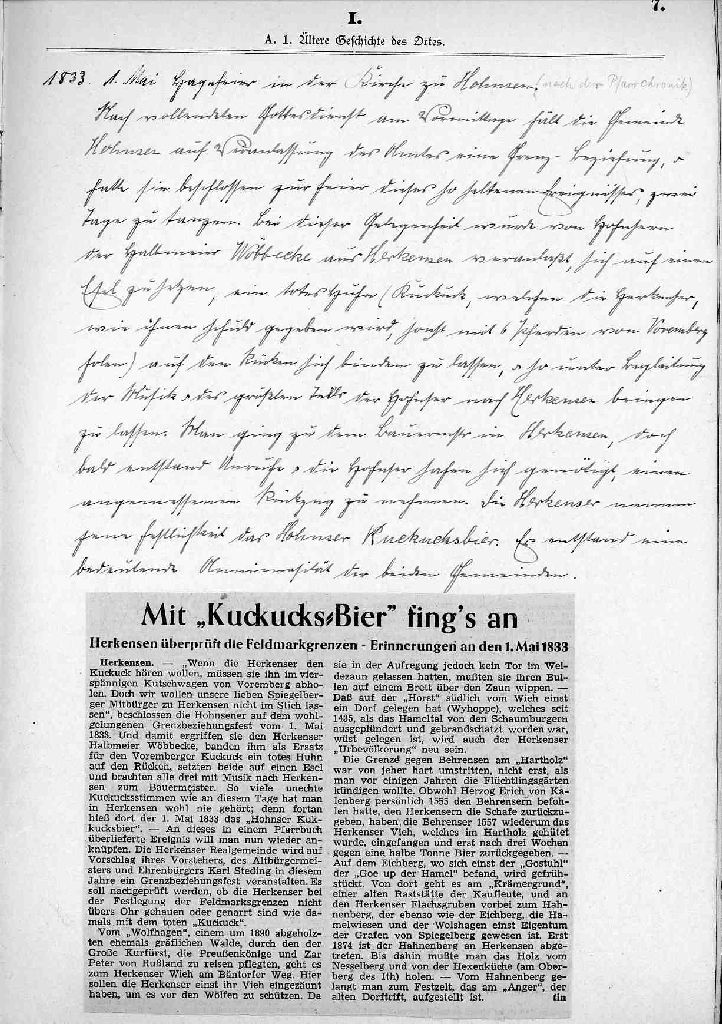 I.
7.
A. 1. Ältere Geschichte des Ortes.
1833. 1. Mai Hagelfeier in der Kirche zu Hohnsen. (nach der Pfarrchronik)
Nach vollendetem Gottesdienst am Vormittage hält die Gemeinde
Hohnsen auf Veranlassung des Amtes eine Grenz-Beziehung,
hatte sie beschlossen zur Feier dieses so seltenen Ereignisses, zwei
Tage zu tanzen. Bei dieser Gelegenheit wurde von Hohnsern
der Halbmeier Wöbbecke aus Herkensen veranlaßt, sich auf einen
Esel zu setzen, ein totes Huhn (Kuckuck, welchen die Herkenser,
wie ihnen schuld gegeben wird, sonst mit 6 Pferden von Voremberg
holen) auf den Rücken sich binden zu lassen, so unter Begleitung
der Musik des größten Teils der Hohnser nach Herkensen bringen
zu lassen. Man ging zu dem Bauermstr in Herkensen, doch
bald entstand Unruhe die Hohnser sahen sich genötigt, einen
angemessenen Rückzug zu nehmen. Die Herkenser nennen
jene Festlichkeit das Hohnser Kuckucksbier. Es entstand eine
bedeutende Animosität der beiden Gemeinden.
Mit „Kuckucks-Bier" fing's an
Herkensen überprüft die Feldmarkgrenzen - Erinnerungen an den 1. Mai 1833
Herkensen. — „Wenn die Herkenser den
Kuckuck hören wollen, müssen sie ihn im vier-
spännigen Kutschwagen von Voremberg abho-
len. Doch wir wollen unsere lieben Spiegelber-
ger Mitbürger zu Herkensen nicht im Stich las-
sen", beschlossen die Hohnsener auf dem wohl-
gelungenen Grenzbeziehungsfest vom 1. Mai
1833. Und damit ergriffen sie den Herkenser
Halbmeier Wöbbecke, banden ihm als Ersatz
für den Voremberger Kuckuck ein totes Huhn
auf den Rücken, setzten beide auf einen Esel
und brachten alle drei mit Musik nach Herken-
sen zum Bauermeister. So viele unechte
Kuckucksstimmen wie an diesem Tage hat man
in Herkensen wohl nie gehört; denn fortan
hieß dort der 1. Mai 1833 das „Hohnser Kuk-
kucksbier". — An dieses in einem Pfarrbuch
überlieferte Ereignis will man nun wieder an-
knüpfen. Die Herkenser Realgemeinde wird auf
Vorschlag ihres Vorstehers, des Altbürgermei-
sters und Ehrenbürgers Karl Steding in diesem
Jahre ein Grenzbeziehungsfest veranstalten. Es
soll nachgeprüft werden, ob die Herkenser bei
der Festlegung der Feldmarksgrenzen nicht
übers Ohr gehauen oder genarrt sind wie da-
mals mit dem toten „Kuckuck".
Vom „Wolfhagen", einem um 1890 abgeholz-
ten ehemals gräflichen Walde, durch den der
Große Kurfürst, die Preußenkönige und Zar
Peter von Rußland zu reisen pflegten, geht es
zum Herkenser Wieh am Bäntorfer Weg. Hier
sollen die Herkenser einst ihr Vieh eingezäunt
haben, um es vor den Wölfen zu schützen. Da
sie in der Aufregung jedoch kein Tor im Wei-
dezaun gelassen hatten, mußten sie ihren Bul-
len auf einem Brett über den Zaun wippen. —
Daß auf der „Horst" südlich vom Wieh einst
ein Dorf gelegen hat (Wyhoppe), welches seit
1435, als das Hameltal von den Schaumburgern
ausgeplündert und gebrandschatzt worden war,
wüst gelegen ist, wird auch der Herkenser
„Urbevölkerung" neu sein.
Die Grenze gegen Behrensen am „Hartholz"
war von jeher hart umstritten, nicht erst, als
man vor einigen Jahren die Flüchtlingsgärten
kündigen wollte. Obwohl Herzog Erich von Ka-
lenberg persönlich 1555 den Behrensern befoh-
len hatte, den Herkensern die Schafe zurückzu-
geben, haben die Behrenser 1557 wiederum das
Herkenser Vieh, welches im Hartholz gehütet
wurde, eingefangen und erst nach drei Wochen
gegen eine halbe Tonne Bier zurückgegeben. —
Auf dem Eichberg, wo sich einst der „Gostuhl"
der „Goe up der Hamel" befand, wird gefrüh-
stückt. Von dort geht es am „Krämergrund",
einer alten Raststätte der Kaufleute, und an
den Herkenser Flachsgruben vorbei zum Hah-
nenberg, der ebenso wie der Eichberg, die Ha-
melwiesen und der Wolshagen einst Eigentum
der Grafen von Spiegelberg gewesen ist. Erst
1874 ist der Hahnenberg an Herkensen abge-
treten. Bis dahin mußte man das Holz vom
Nesselberg und von der Hexenküche (am Ober-
berg des Ith) holen. — Vom Hahnenberg ge-
langt man zum Festzelt, das am „Anger", der
alten Dorftrift, aufgestellt ist.